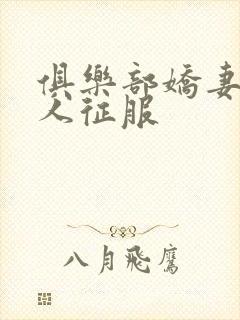 俱樂部嬌妻
人征服
八月飛鷹